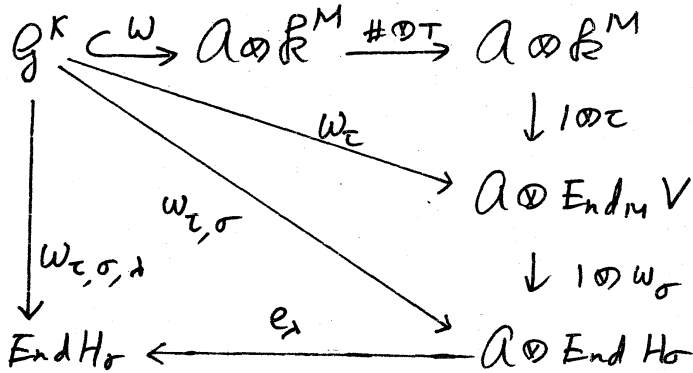 𝒢^K ω 𝒜 ⊗ 𝓀^M #⊗T 𝒜 ⊗ 𝓀^M
1⊗τ
ω_τ
𝒜 ⊗ End_M V
ω_τ,σ
1⊗ω_σ
ω_τ,σ,λ
e_λ
End H_σ 𝒜 ⊗ End H_σ